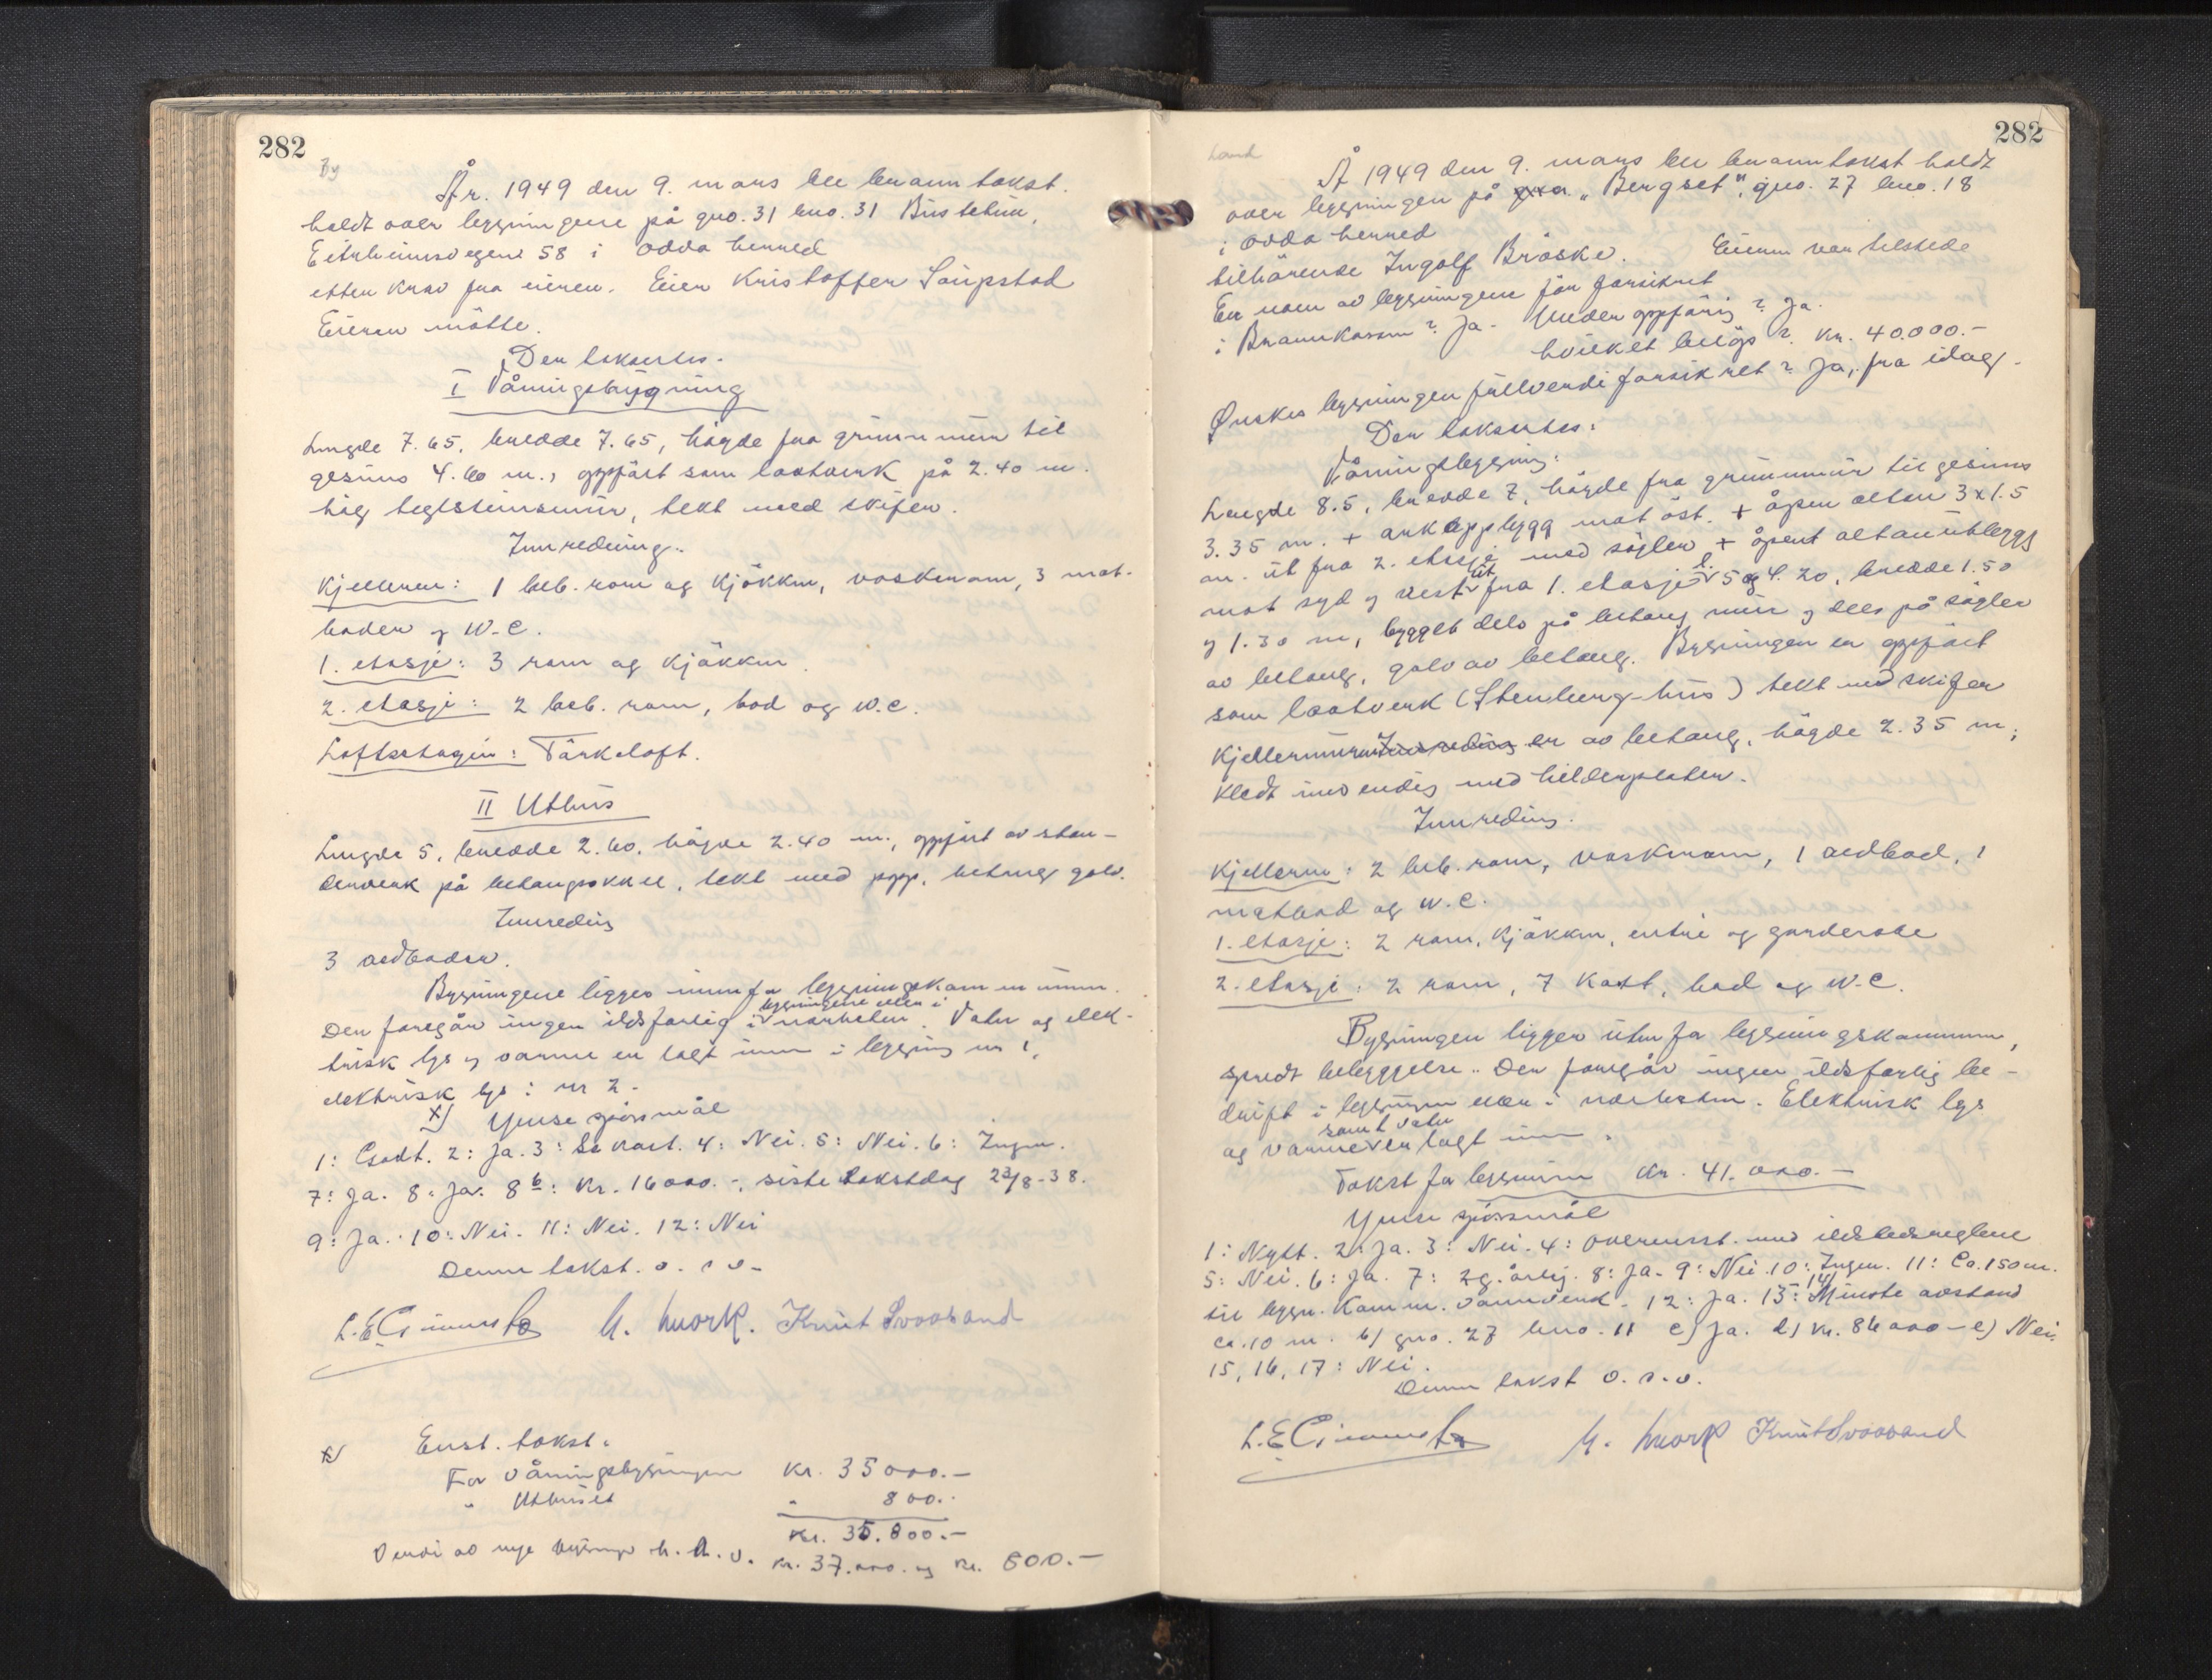 282
By
År. 1949 den 9. mars ble branntakst.
holdt over bygningene på gno. 31 bno. 31 Bustetun,
Eitrheimsvegen 58 i Odda herred
etter krav fra eieren. Eier Kristoffer
Eieren møtte.
Der takseres.
I Våningsbygning
Lengde 7.65, bredde 7.65, høyde fra grunnmur til
gesims 4.60 m., oppført som laftverk på 2.40 m.
høg teglsteinsmur, tekt med skifer.
Innredning.
Kjelleren: 1 beb. rom og kjøkken, vaskerom, 3 mat-
boder og W.C.
1. etasje: 3 rom og kjøkken.
2. etasje: 2 beb. rom, bod og W.C.
Loftsetagen: Tørkeloft.
II Uthus
Lengde 5, bredde 2.60, høyde 2.40 m., oppført av sten-
derverk på betongsokkel, tekt med papp, betong golv.
Innreding
3 vedboder.
Bygningene ligger innenfor bygningskommunen.
Der foregår ingen ildsfarlig i bygningene eller i nærheten. Vatn og elek-
trisk lys og varme er lagt inn i bygning nr 1,
elektrisk lys i nr 2.
x) Ymse spørsmål
1: Godt. 2: Ja. 3: Se kart. 4: Nei. 5: Nei. 6: Ingen.
7: Ja. 8: Ja. 8b: Kr. 16000.-, siste takstdag 23/8-38.
9: Ja. 10: Nei. 11: Nei. 12: Nei
Denne takst. o.s.v.
L. E. M. Mork. Knut Svoosand
x) Enst. takst.
For våningsbygningen Kr. 35000.-
" Uthuset " 800.-
Kr. 35.800.-
Verdi av nye bygninger h.h.v. Kr. 37.000.- og Kr. 800.-
282
Land
År 1949 den 9. mars ble branntakst holdt
over bygningen på "Bergset", gno. 27 bno. 18
i Odda herred
tilhørende Ingolf Bråske. Eieren var tilstede
Er noen av bygningene før forsikret
i Brannkassen? Ja. Under oppføring? Ja.
hvilket beløp? Kr. 40.000.-
Ønskes bygningen fullverdiforsikret? Ja, fra idag.
Der takseres:
Våningsbygning.
Lengde 8.5, bredde 7, høyde fra grunnmur til gesims
3.35 m. + arkoppbygg mot øst. + åpen altan 3x1.5
m. ut fra 2. etasje med søyler + åpent altanutbygg
mot syd og vest ut fra 1. etasje l. 5 og 4.20, bredde 1.50
og 1.30 m, bygget dels på betong mur og dels på søyler
av betong, golv av betong. Bygningen er oppført
som laftverk (Stenberg-hus) tekt med skifer
Kjellermuren Innreding er av betong, høgde 2.35 m,
kledt innvendig med hilderplater.
Innreding.
Kjelleren: 2 beb. rom, vaskerom, 1 vedbod, 1
matbod og W.C.
1. etasje: 2 rom, kjøkken, entré og garderobe
2. etasje: 2 rom, 7 kott, bad og W.C.
Bygningen ligger utenfor bygningskommunen,
spredt bebyggelse. Der foregår ingen ildsfarlig be-
drift i bygningen eller i nærheten. Elektrisk lys
og varme samt vatn er lagt inn.
Takst for bygningen Kr. 41.000.-
Ymse spørsmål
1: Nytt. 2: Ja. 3: Nei. 4: Overensst. med ildstedsreglene
5: Nei. 6: Ja. 7: 2 g. årlig. 8: Ja. 9: Nei. 10: Ingen. 11: Ca. 150 m.
til bygn. komm. vannverk. 12: Ja. 13: 14) Minste avstand
ca. 10 m. b) gno. 27 bno. 11 c) Ja. d) Kr. 86000.- e) Nei.
15, 16, 17: Nei.
Denne takst o.s.v.
L. E. M. Mork Knut Svoosand